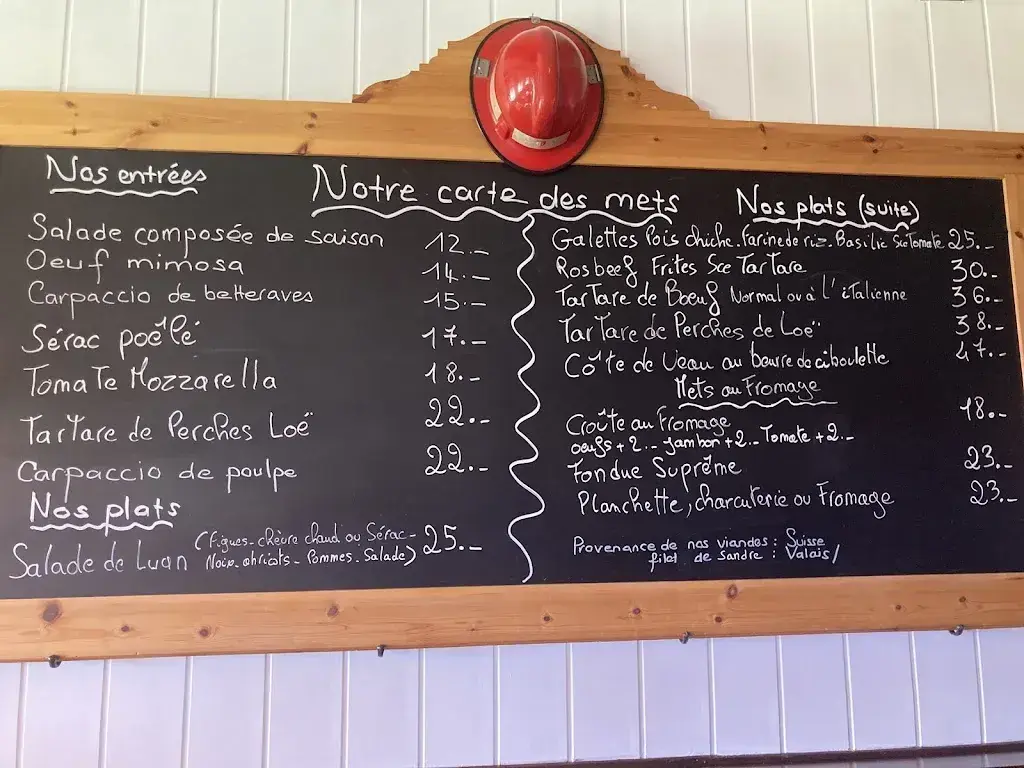 Notre carte des mets
Nos entrées
Salade composée de saison 12.-
Oeuf mimosa 14.-
Carpaccio de betteraves 15.-
Sérac poêlé 17.-
Tomate Mozzarella 18.-
Tartare de Perches Loë 22.-
Carpaccio de poulpe 22.-
Nos plats
Salade de Luan (Figues-chèvre chaud ou Sérac- 25.-
Noix-abricots-Pommes-Salade)
Nos plats (suite)
Galettes Pois chiche-Farine de riz-Basilic Sce Tomate 25.-
Rosbeef Frites Sce Tartare 30.-
Tartare de Boeuf Normal ou à l'italienne 36.-
Tartare de Perches de Loë 38.-
Côte de Veau au beurre de ciboulette 47.-
Mets au Fromage
Croûte au Fromage 18.-
oeufs+2.- Jambon+2.- Tomate+2.-
Fondue Suprême 23.-
Planchette, charcuterie ou Fromage 23.-
Provenance de nos viandes : Suisse
filet de Sandre : Valais/